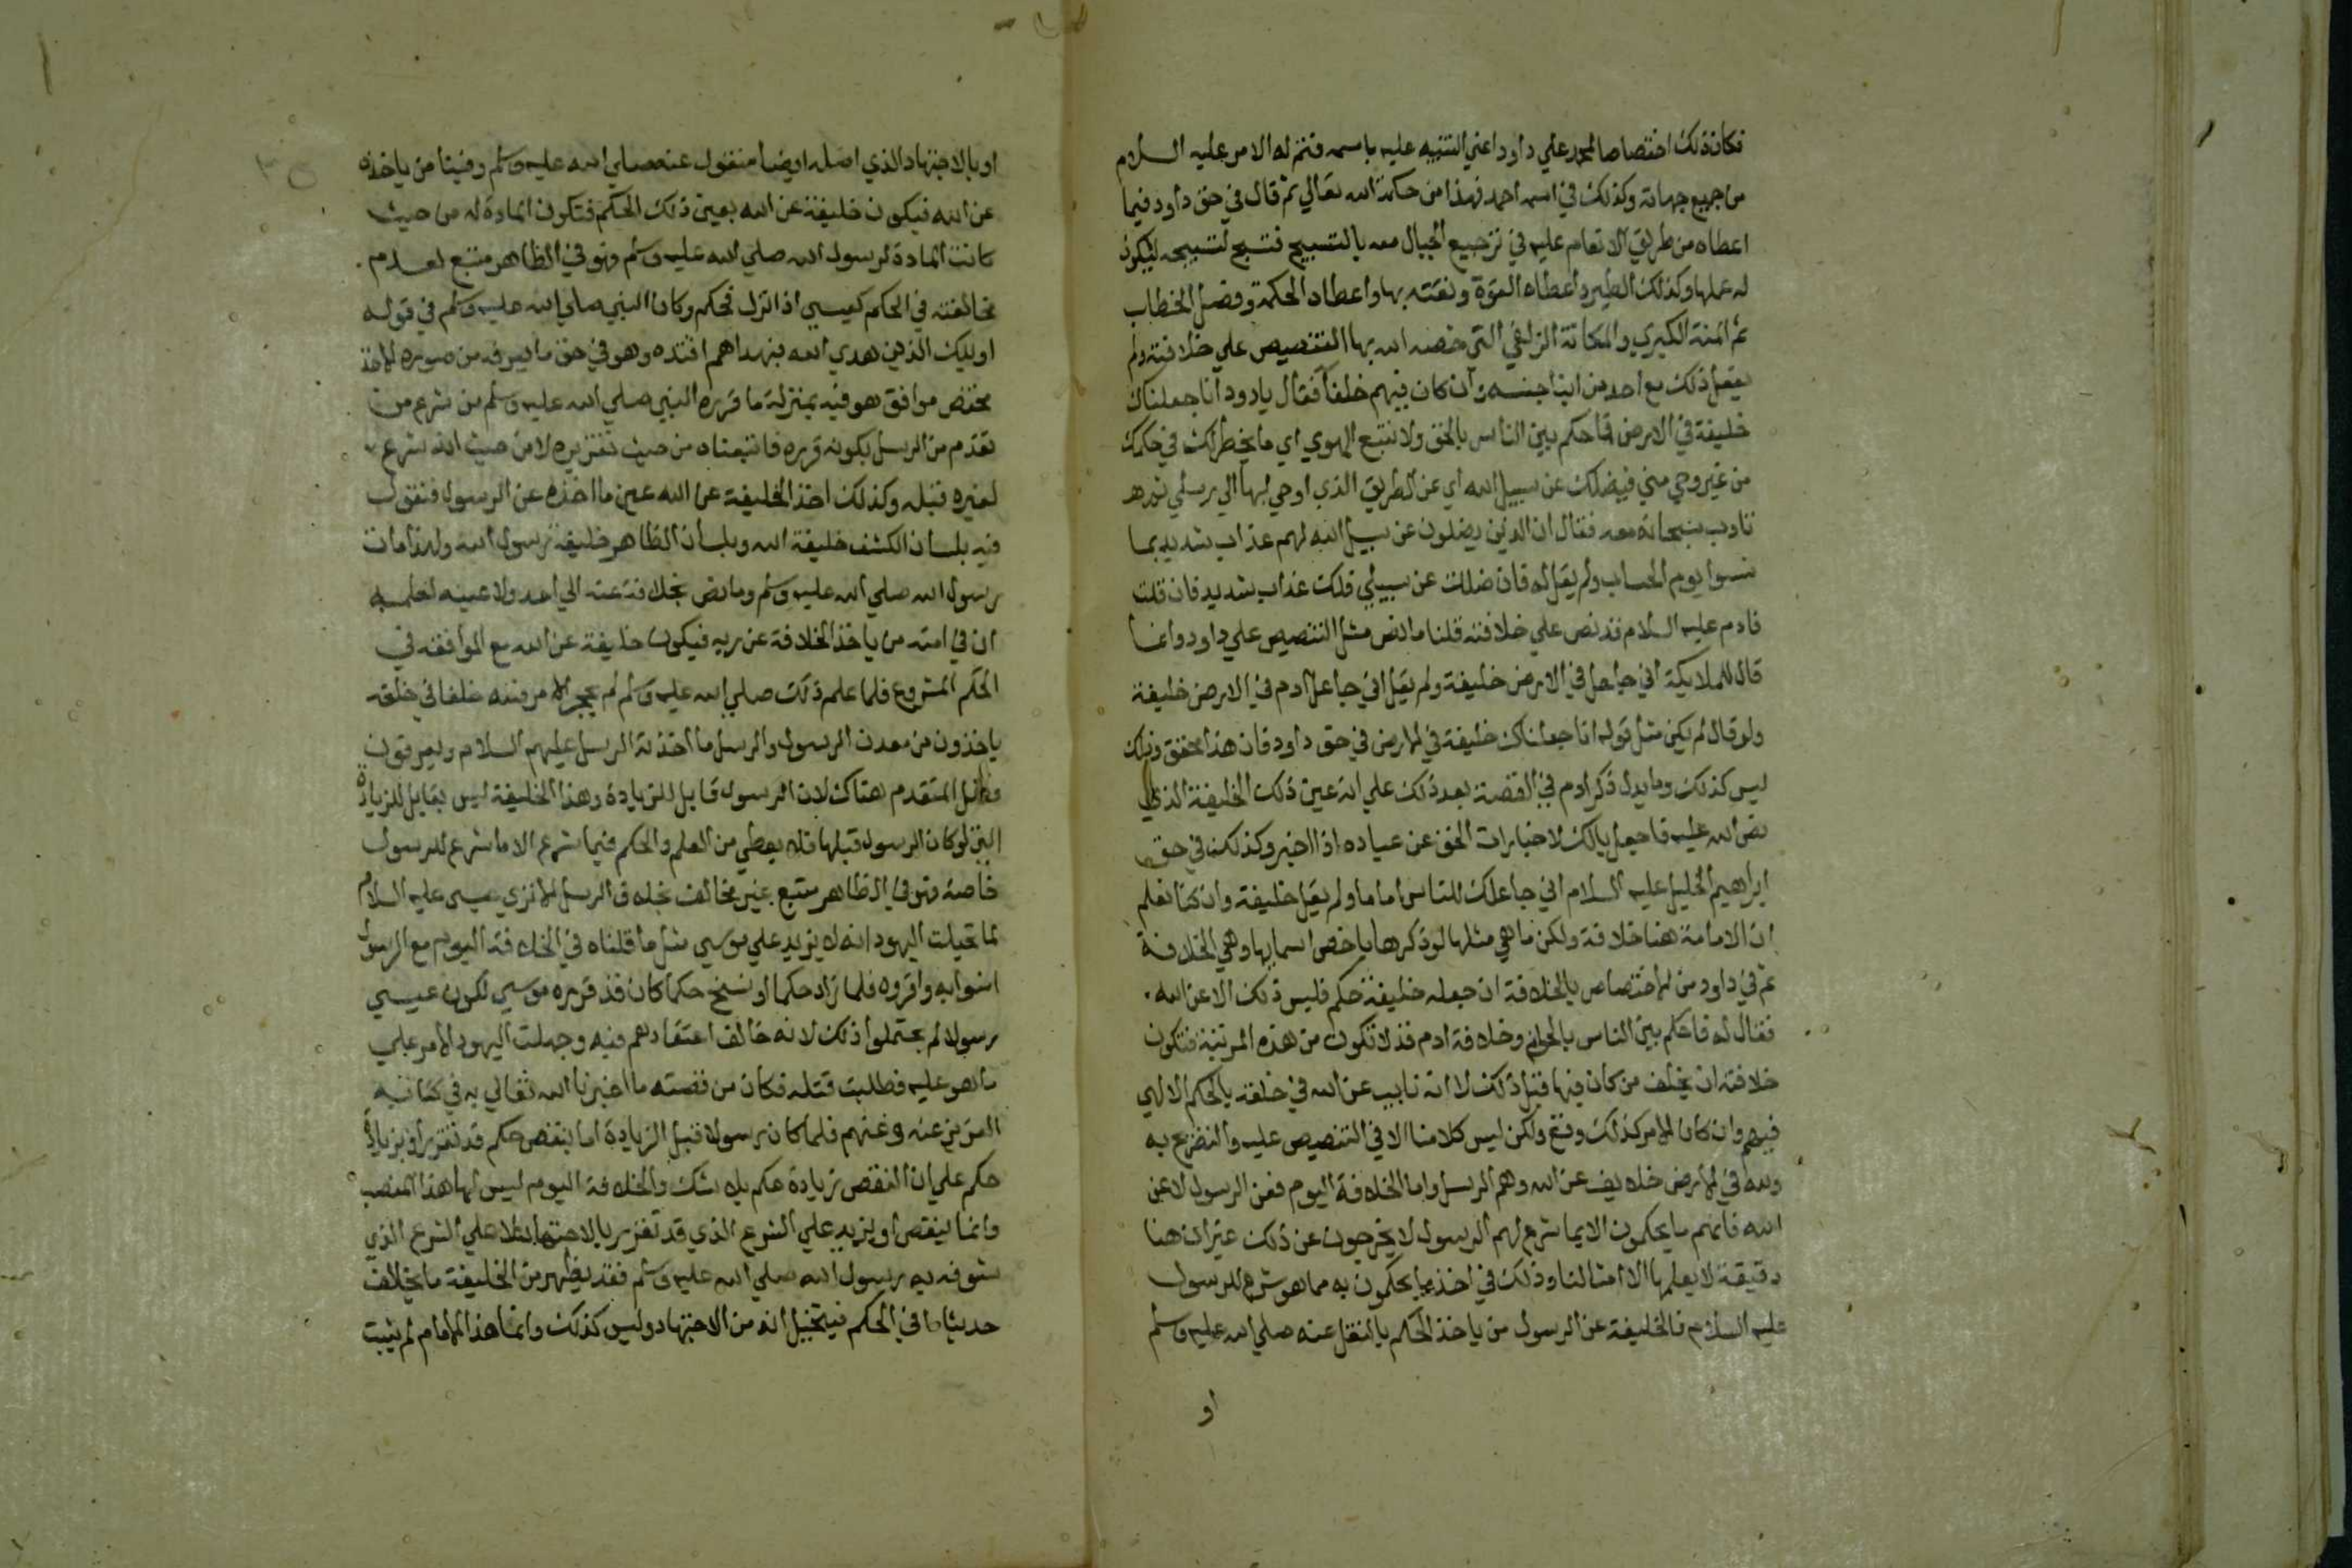 فكان ذلك اختصاصا لمحمد علي داود اعني التنبيه عليه باسمه فتم له الامر عليه السلام
من جميع جهاته وكذلك في اسمه احمد فهذا من حكمة الله تعالي ثم قال في حق داود فيما
اعطاه من طريق الانعام عليه في ترجيع الجبال معه بالتسبيح فتسبح لتسبيحه ليكون
له عملها وكذلك الطير واعطاه القوة ونعته بها واعطاه الحكمة وفصل الخطاب
ثم المنة الكبري والمكانة الزلفي التي خصه الله بها التنصيص علي خلافته ولم
يفعل ذلك مع احد من ابنا جنسه وان كان فيهم خلفا فقال يا دود انا جعلناك
خليفة في الارض فاحكم بين الناس بالحق ولا تتبع الهوي اي ما يخطر لك في حكمك
من غير وحي مني فيضلك عن سبيل الله اي عن الطريق الذي اوحي بها الي رسلي ثم
تادب سبحانه معه فقال ان الذين يضلون عن سبيل الله لهم عذاب شديد بما
نسوا يوم الحساب ولم يقل له فان ضللت عن سبيلي فلك عذاب شديد فان قلت
فادم عليه السلام قد نص علي خلافته قلنا ما نص مثل التنصيص علي داود وانما
قال للملايكة اني جاعل في الارض خليفة ولم يقل اني جاعل ادم في الارض خليفة
ولو قال لم يكن مثل قوله انا جعلناك خليفة في الارض في حق داود فان هذا محقق وذلك
ليس كذلك وما يدل ذكر ادم في القصة بعد ذلك علي انه عين ذلك الخليفة الذي
نص الله عليه فاجعل بالك لاخبارات الحق عن عباده اذا اخبر وكذلك في حق
ابراهيم الخليل عليه السلام اني جاعلك للناس اماما ولم يقل خليفة وان كنا نعلم
ان الامامة هنا خلافة ولكن ما هي مثلها لو ذكرها باخص اسمايها وهي الخلافة
ثم في داود من الاختصاص بالخلافة ان جعله خليفة حكم فليس ذلك الا عن الله
فقال له فاحكم بين الناس بالحق وخلافة ادم قد لا تكون من هذه المرتبة فتكون
خلافته ان يخلف من كان فيها قبل ذلك لا انه نايب عن الله في خلقه بالحكم الالهي
فيهم وان كان الامر كذلك وقع ولكن ليس كلامنا الا في التنصيص عليه والتصريح به
ولله في الارض خلايف عن الله وهم الرسل واما الخلافة اليوم فعن الرسول لا عن
الله فانهم ما يحكمون الا بما شرع لهم الرسول لا يخرجون عن ذلك غير ان هنا
دقيقة لا يعلمها الا امثالنا وذلك في اخذ ما يحكمون به مما هو شرع للرسول
عليه السلام فالخليفة عن الرسول من ياخذ الحكم بالنقل عنه صلي الله عليه وسلم
او
او بالاجتهاد الذي اصله ايضا منقول عنه صلي الله عليه وسلم وفينا من ياخذه
عن الله فيكون خليفة عن الله بعين ذلك الحكم فتكون المادة له من حيث
كانت المادة لرسول الله صلي الله عليه وسلم وهو في الظاهر متبع لعدم
مخالفته في الحكم كعيسي اذا نزل فحكم وكان النبي صلي الله عليه وسلم في قوله
اوليك الذين هدي الله فبهداهم اقتده وهو في حق ما يعرفه من صورة الاخذ
مختص موافق هو فيه بمنزلة ما قرره النبي صلي الله عليه وسلم من شرع من
تقدم من الرسل بكونه قرره فاتبعناه من حيث تقريره لا من حيث انه شرع
لغيره قبله وكذلك اخذ الخليفة عن الله عين ما اخذه عن الرسول فنقول
فيه بلسان الكشف خليفة الله وبلسان الظاهر خليفة رسول الله ولهذا مات
رسول الله صلي الله عليه وسلم وما نص بخلافة عنه الي احد ولا عينه لعلمه
ان في امته من ياخذ الخلافة عن ربه فيكون خليفة عن الله مع الموافقة في
الحكم المشروع فلما علم ذلك صلي الله عليه وسلم لم يحجر الامر فلله خلفا في خلقه
ياخذون من معدن الرسول والرسل ما اخذته الرسل عليهم السلام ويعرفون
فضل المتقدم هناك لان الرسول قابل للزيادة وهذا الخليفة ليس بقابل للزيادة
التي لو كان الرسول قبلها فلا يعطي من العلم والحكم فيما شرع الا ما شرع للرسول
خاصة وهو في الظاهر متبع غير مخالف بخلاف الرسل الا تري عيسي عليه السلام
لما تخيلت اليهود انه لا يزيد علي موسي مثل ما قلناه في الخلافة اليوم مع الرسول
امنوا به واقروه فلما زاد حكما او نسخ حكما كان قد قرره موسي لكون عيسي
رسولا لم يحتملوا ذلك لانه خالف اعتقادهم فيه وجهلت اليهود الامر علي
ما هو عليه فطلبت قتله فكان من قصته ما اخبرنا الله تعالي به في كتابه
العزيز عنه وعنهم فلما كان رسولا قبل الزيادة اما بنقص حكم قد تقرر او بزيادة
حكم علي ان النقص زيادة حكم بلا شك والخلافة اليوم ليس لها هذا المنصب
وانما ينقص او يزيد علي الشرع الذي قد تقرر بالاجتهاد لا علي الشرع الذي
شوفه به رسول الله صلي الله عليه وسلم فقد يظهر من الخليفة ما يخالف
حديثا ما في الحكم فيتخيل انه من الاجتهاد وليس كذلك وانما هذا الامام لم يثبت